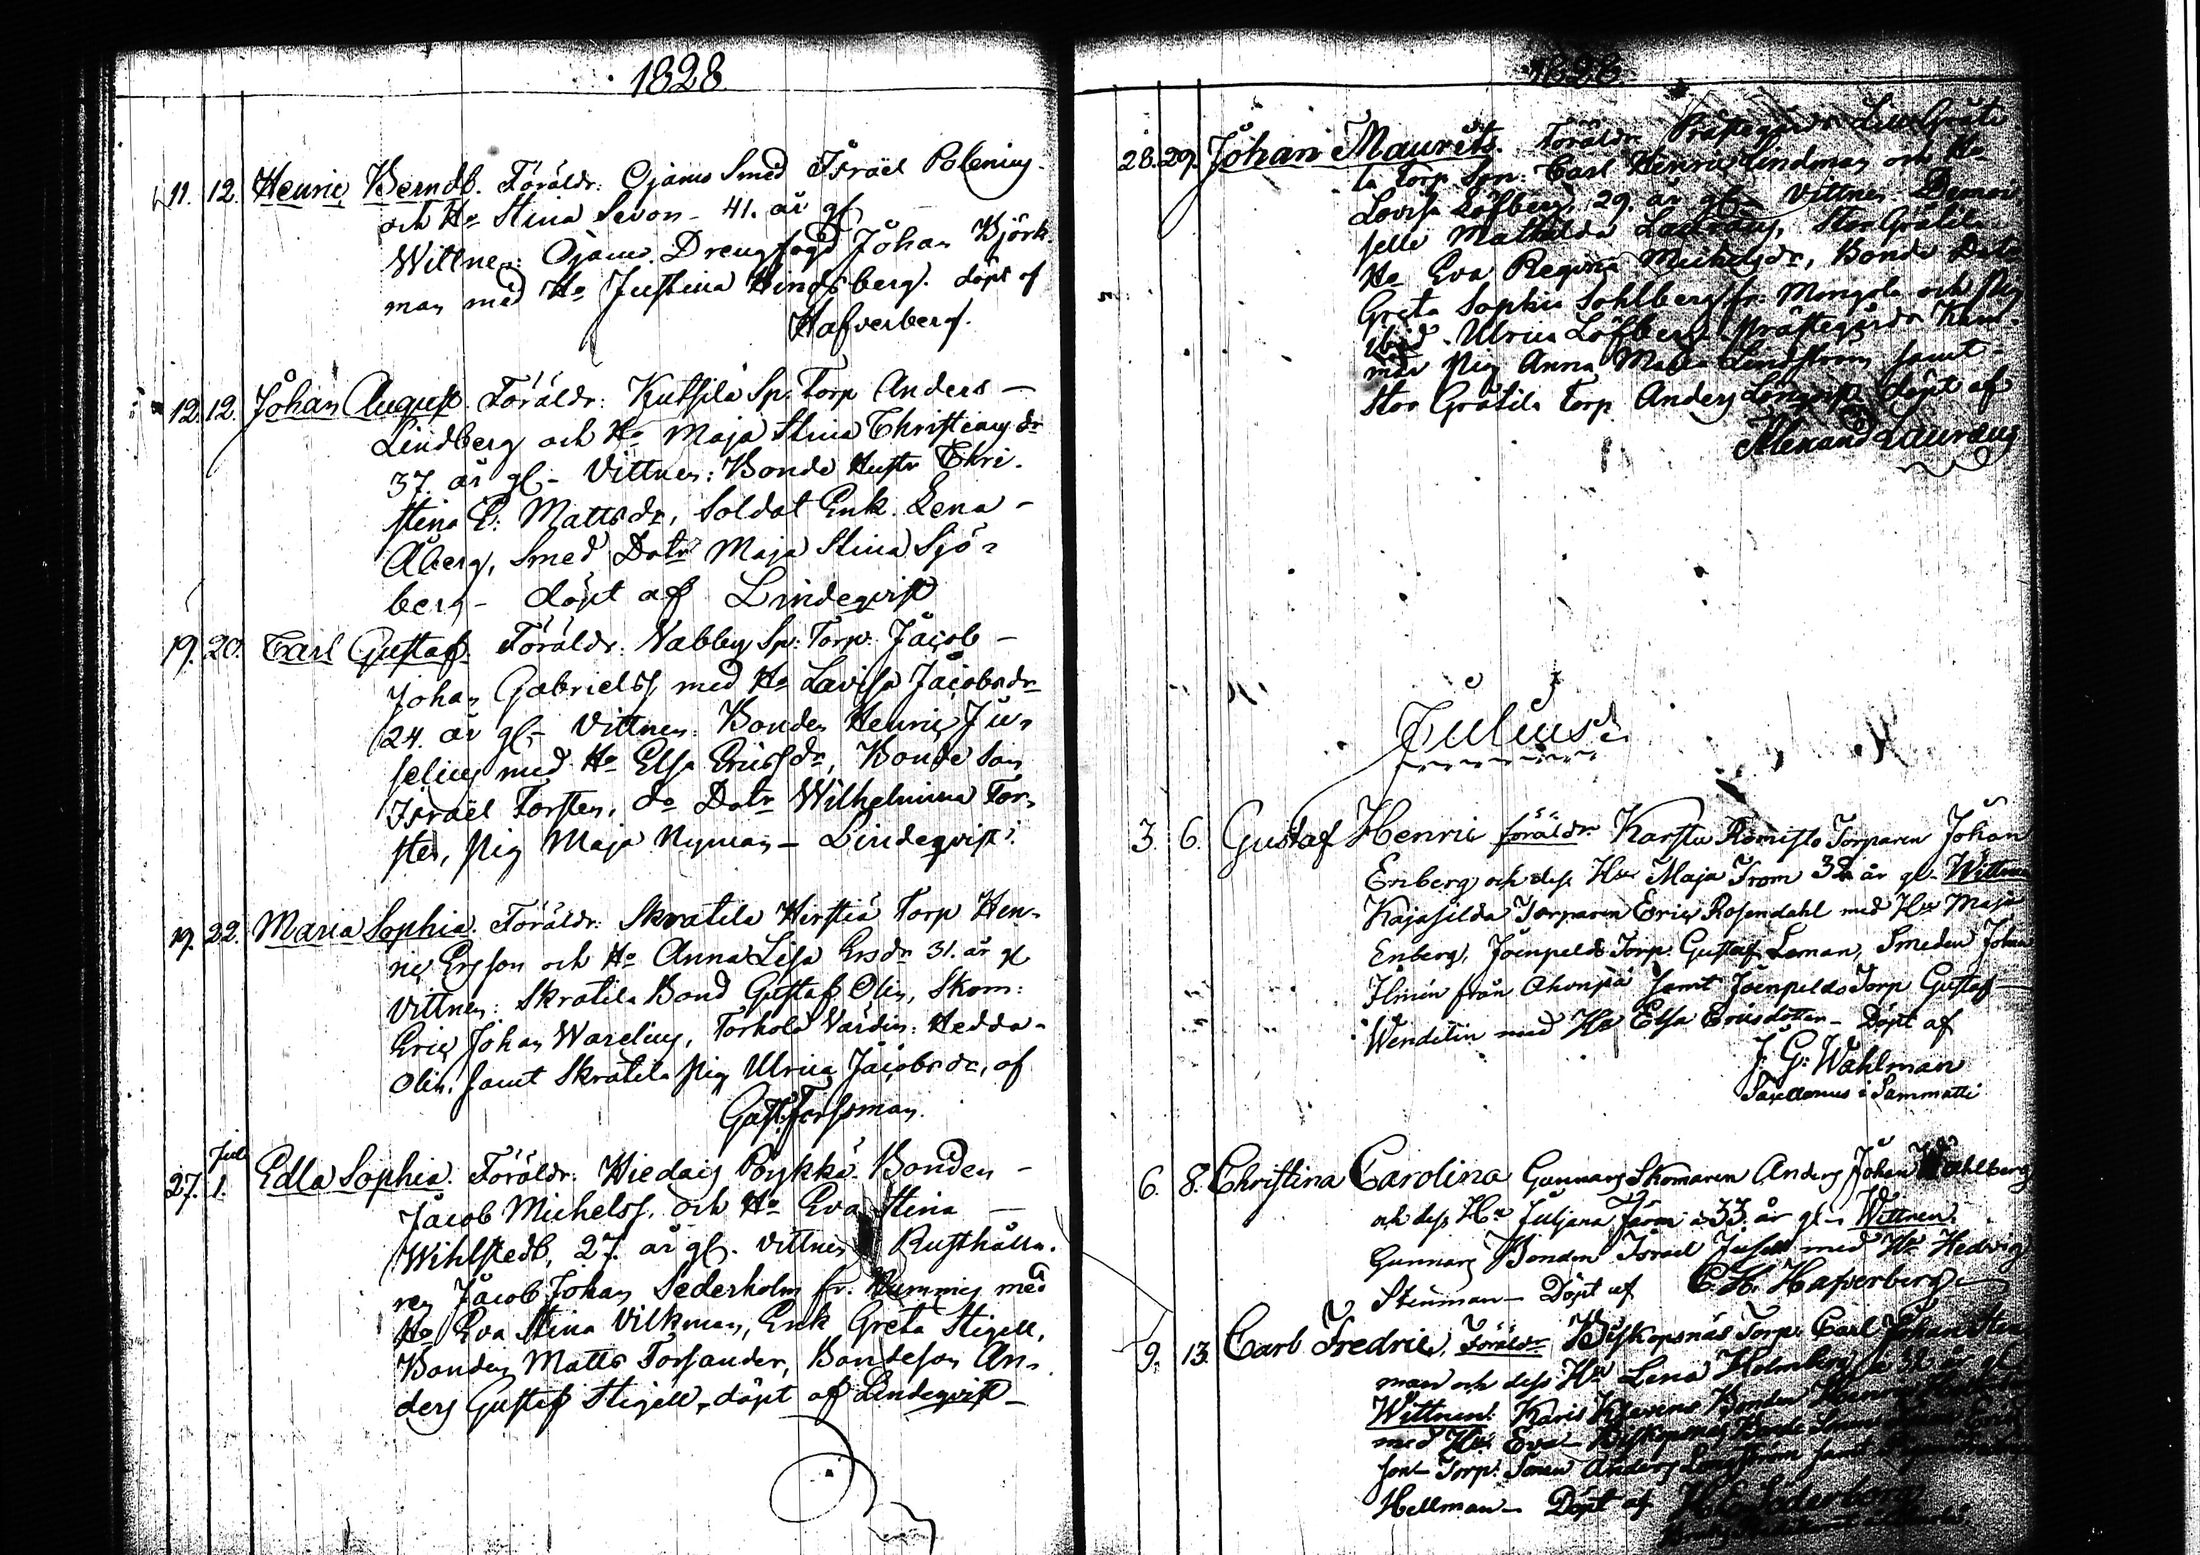 1828
11. 12. Henric Berndt. Föräldr: Ojamo Smed Israel Polenius
och Ho Stina Sevon - 41. år gl.
Wittnen: Ojamo Drengfogd Johan Björk
man med Ho Justina Hindsberg. döpt af
Hafverberg.
12. 12. Johan August. Föräldr: Kutsila Sp: Torp Anders
Lindberg och Ho Maja Stina Christiansdr
37. år gl - Vittnen: Bonde Hustr Chri-
stina E: Mattsdr, Soldat Enk. Lena -
Åberg, Smed Dotr Maja Stina Sjö-
berg - döpt af Lindeqvist
19. 20. Carl Gustaf. Föräldr: Nabby Sp: Torp: Jacob -
Johan Gabrielss. med Ho Lovisa Jacobsdr
24. år gl - Vittnen: Bonden Henric Ju-
selius med Ho Elsa Ericsdr, Bonde Son
Israël Forsten, do Dotr Wilhelmina For-
sten, Pig Maja Nyman - Lindeqvist.
19. 22. Maria Sophia. Föräldr: Skratila Torp Hen-
ric Ersson och Ho Anna Lisa Ersdr 31. år gl
Vittnen: Skratila Bond Gustaf Olin, Skom:
Eric Johan Warelius, Torhola Värdin: Hedda -
Olin. samt Skratila Pig Ulrica Jacobsdr, af
Gust: Forssman.
27. Jul 1. Edla Sophia. Föräldr: Hiedais Pöykkä Bonden -
Jacob Michelss. och Ho Eva Stina -
Wihlstedt, 27. år gl. Vittnen Rusthålla-
ren Jacob Johan Sederholm fr. Nummis med
Ho Eva Stina Vilkman, Enk Greta Stigell,
Bonden Matts Forsander, Bondeson An-
ders Gustaf Stigell, döpt af Lindeqvist -
1828.
28. 29. Johan Maurits. Föräldr Prästegårds
la Torp Spm: Carl Henric Lindman och Ho
Lovisa Löfberg, 29. år gl - Vittnen Demoi-
selle Mathilda Lauræus, Stor Gråtila
Ho Eva Regina Michelsdr, Bonde Dotr
Greta Sophia Sohlberg fr: Mongola och Pig
ibid. Ulrica Löfberg. Prästegårds
Pig Anna Maria Lindström samt
Stor Gråtila Torp Anders döpt af
Alexand Lauræus
Julius
3. 6. Gustaf Henric föräldr Karstu Torparen Johan
Enberg och dess Hu Maja From 32 år gl. Wittnen
Torparen Eric Rosendahl med Hu Maja
Enberg, Joenpelds Torp. Gustaf Leman, Smeden Johan
Ilmén från samt Joenpelds Torp Gustaf
Wendelin med Hu Elsa Ericsdotter - Döpt af
J. G: Wahlman
Sacellanus i Sammatti
6. 8. Christina Carolina Gunnars Skomaren Anders Johan Wahlberg
och dess Hu Juljana 33. år gl - Wittnen.
Gunnars Bonden Israel med Hu Hedvig
Stenman - Döpt af C. H. Hafverberg
9. 13. Carl Fredric, Föräldr Biskopsnäs Torp: Carl Johan Sten
man och dess Hu Lena Holmberg 32 år gl
Wittnen: Karis Bonden
med Hu Eva - Biskopsnäs Bonde
son Torp: Sonen Anders Långström samt
Hellman - Döpt af